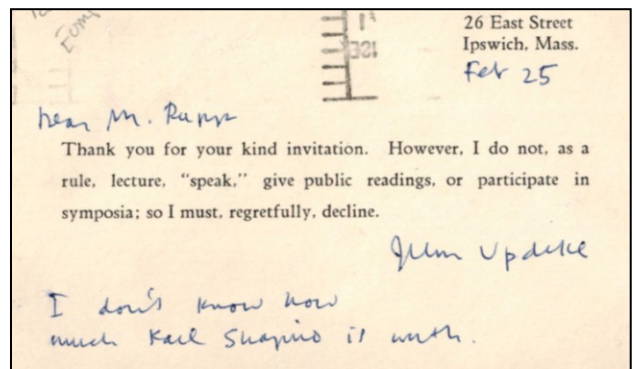 26 East Street
Ipswich, Mass.
Feb 25
Dear Mr. Rapp
Thank you for your kind invitation. However, I do not, as a
rule, lecture, "speak," give public readings, or participate in
symposia; so I must, regretfully, decline.
John Updike
I don't know how
much Karl Shapiro is worth.